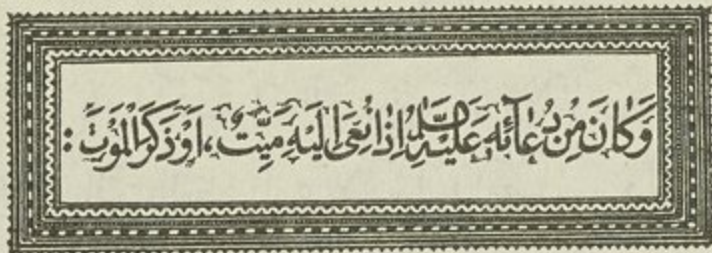 وَكَانَ مِنْ دُعَآئِهِ عَلَيْهِ السَّلَامُ اِذَا نُعِىَ اِلَيْهِ مَيِّتٌ، اَوْ ذَكَرَ الْمَوْتَ: